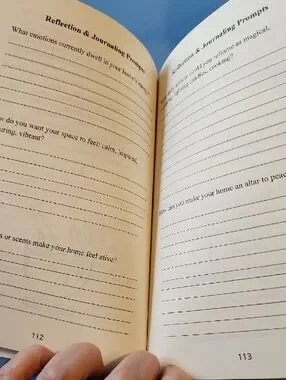 Reflection & Journaling Prompts
What emotions currently dwell in your home's energy?
do you want your space to feel: calm, inspired,
vibrant?
or scents make your home feel alive?
112
Reflection & Journaling Prompts
could you reframe as magical,
lighting candles, cooking?
can you make your home an altar to peace
113